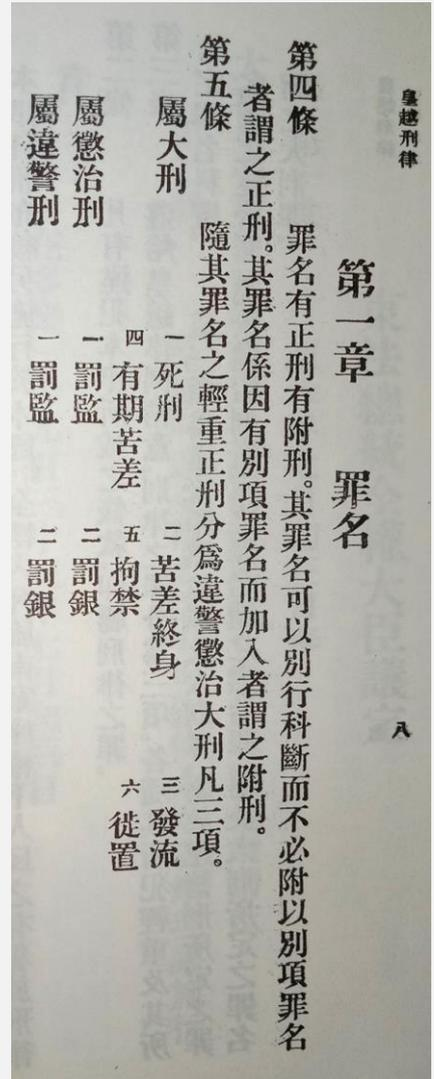 皇越刑律
八
第一章 罪名
第四條 罪名有正刑有附刑。其罪名可以別行科斷而不必附以別項罪名
者謂之正刑。其罪名係因有別項罪名而加入者謂之附刑。
第五條 隨其罪名之輕重正刑分爲違警懲治大刑凡三項。
屬大刑 一 死刑 二 苦差終身 三 發流
四 有期苦差 五 拘禁 六 徙置
屬懲治刑 一 罰監 二 罰銀
屬違警刑 一 罰監 二 罰銀